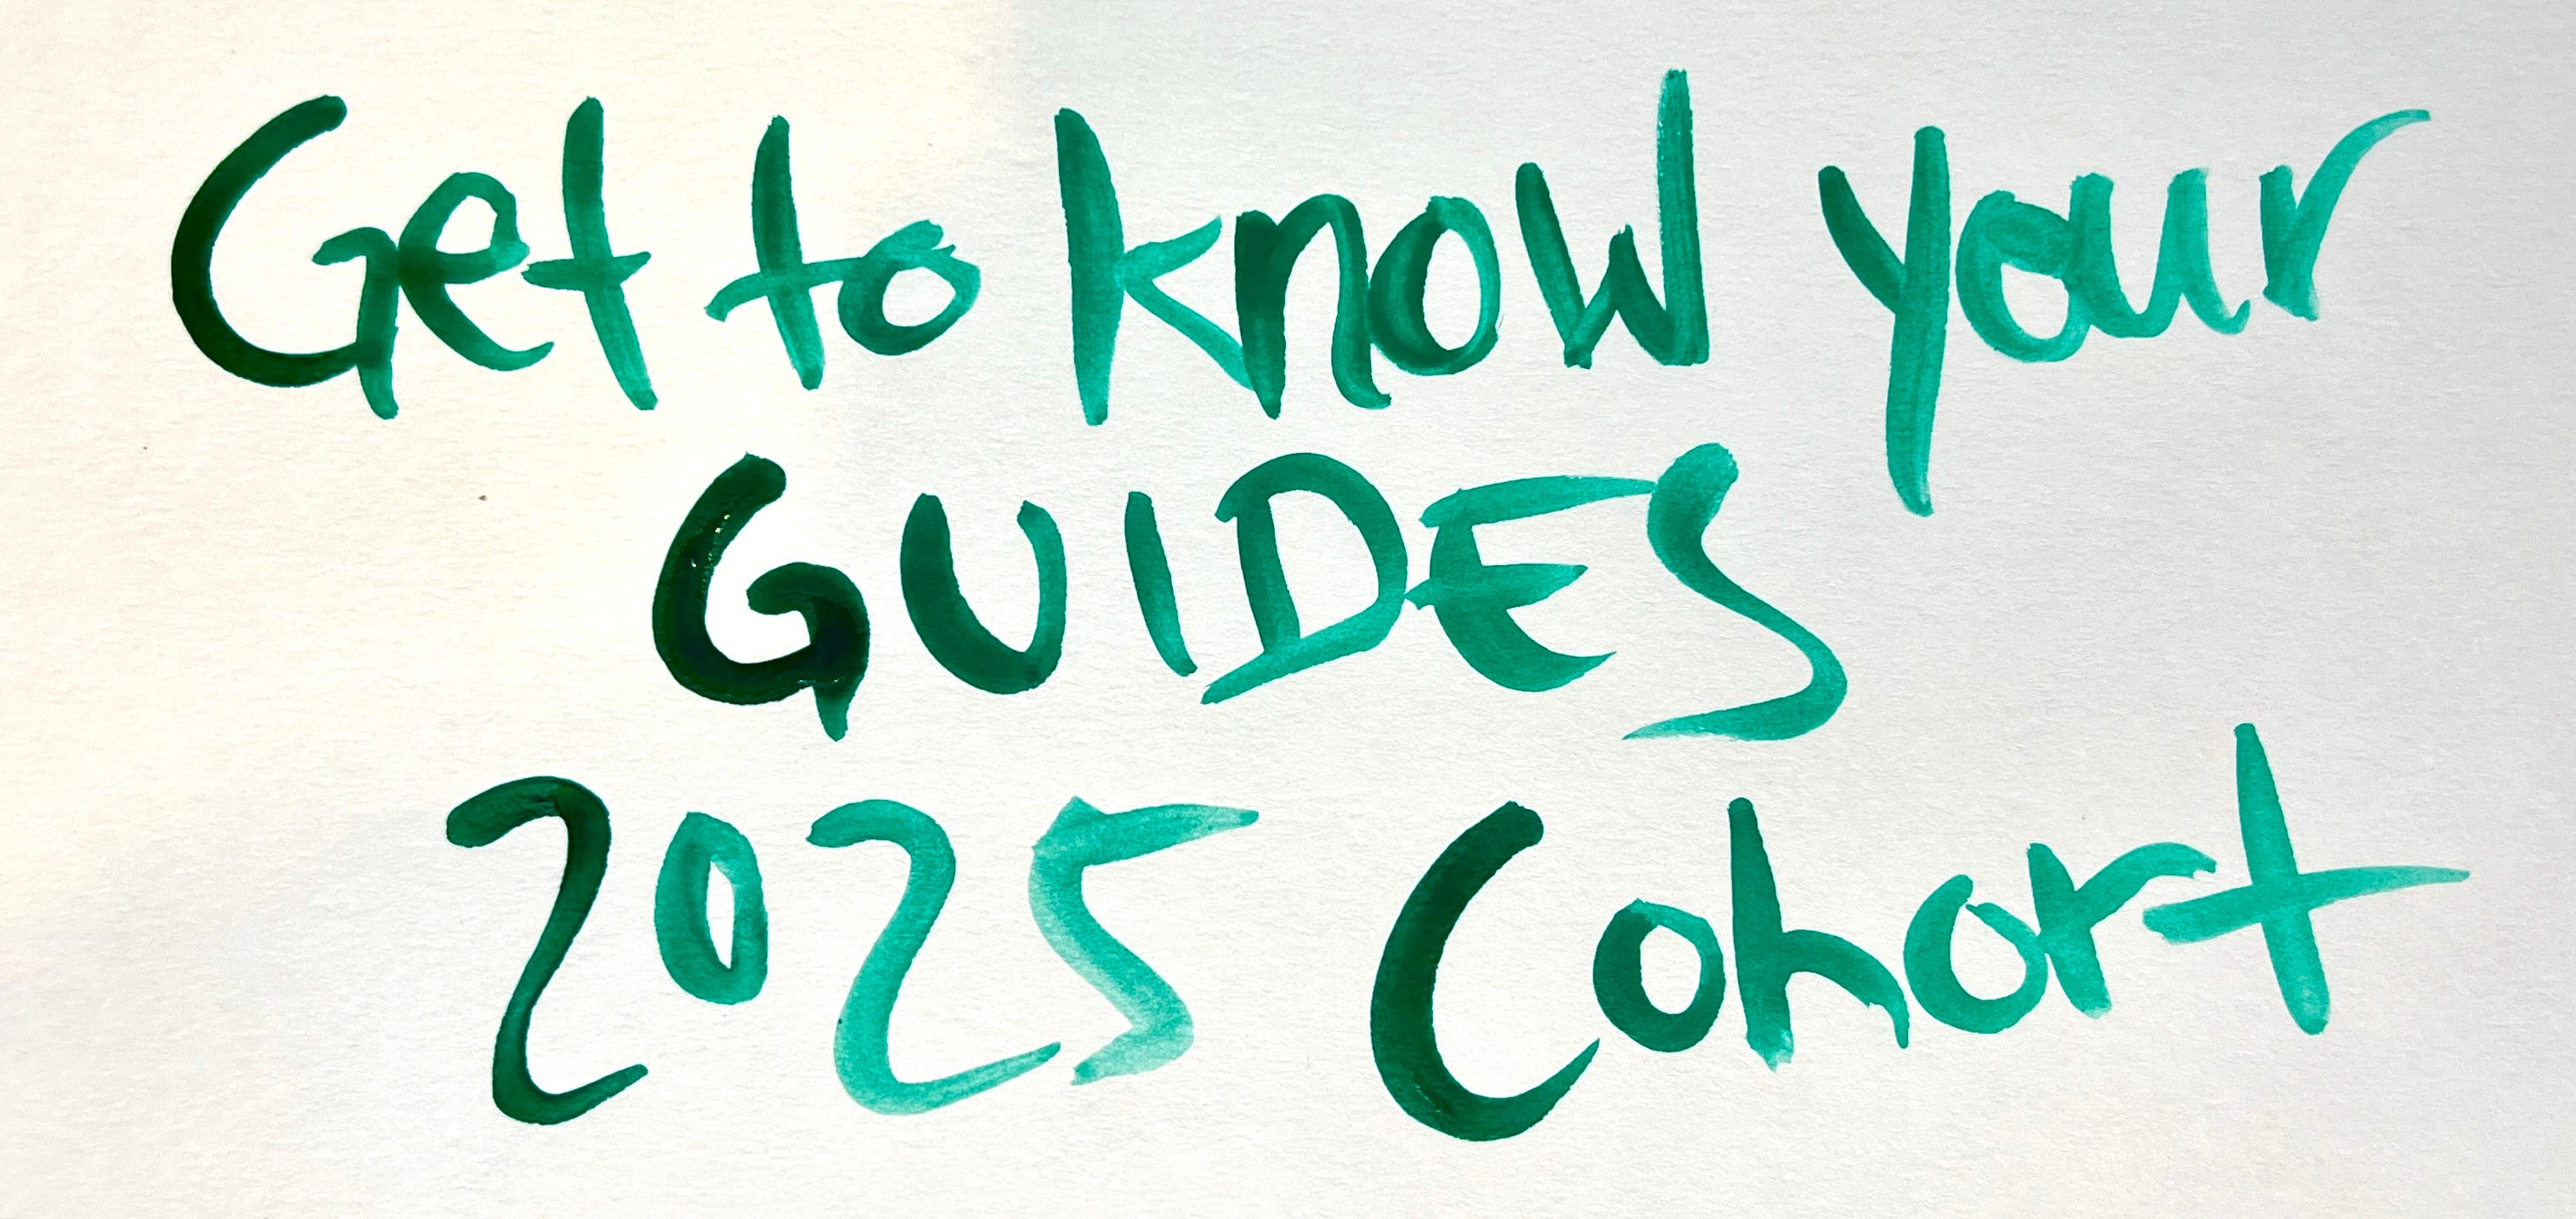 Get to know your
GUIDES
2025 Cohort